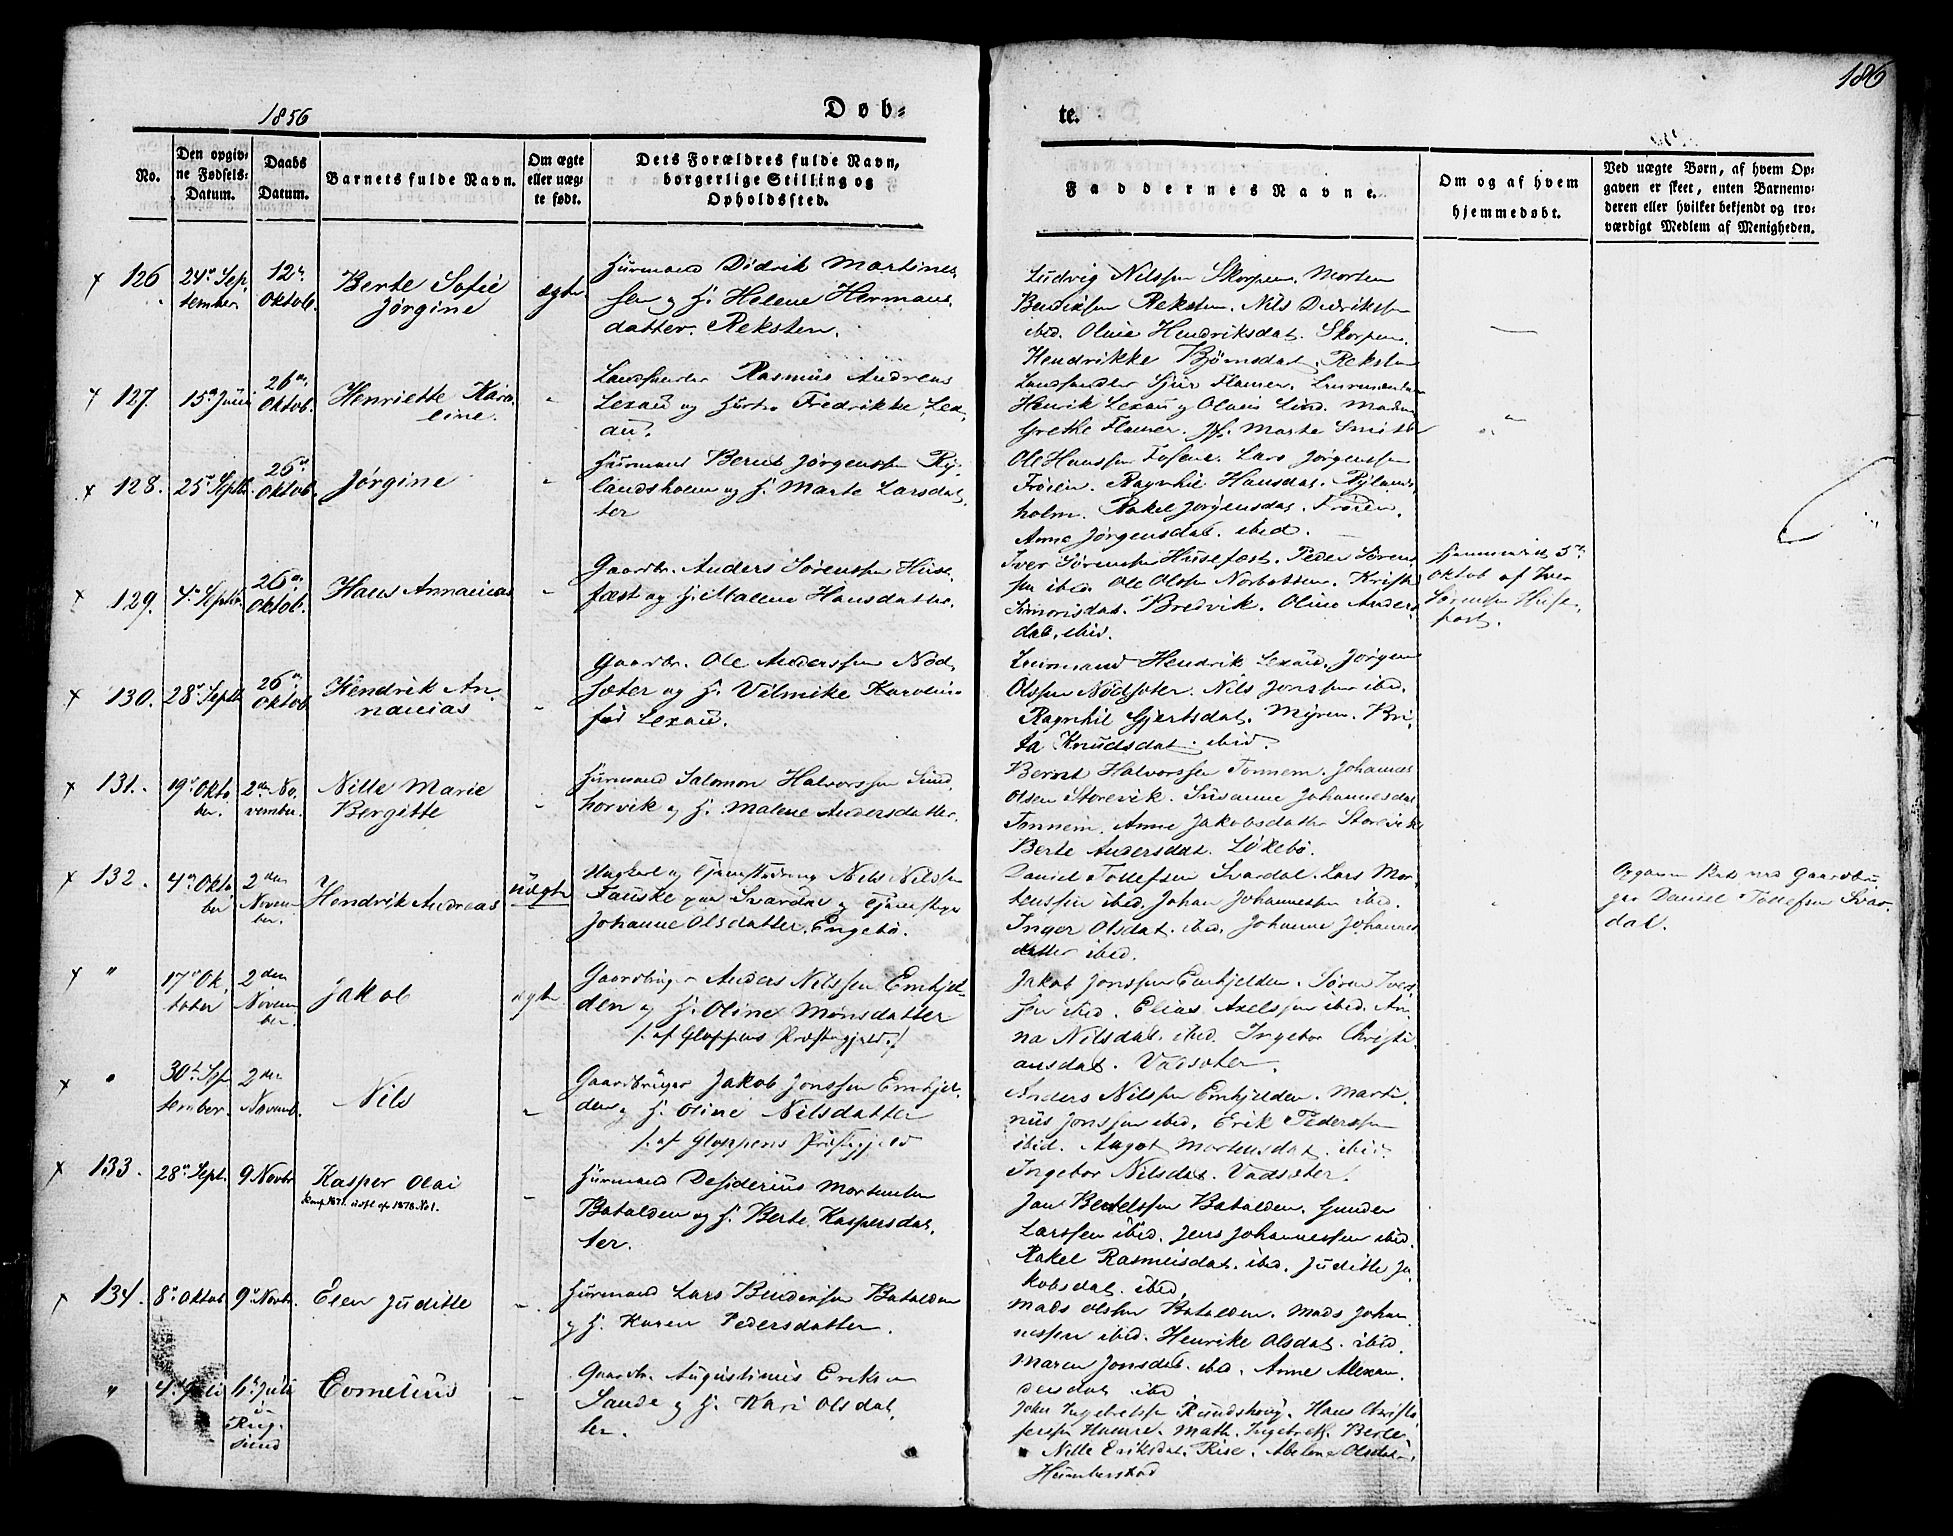 186
1856
Døb=
te.
No.
Den opgiv=
ne Fødsels=
Datum.
Daabs
Datum.
Barnets fulde Navn.
Om ægte
eller uæg=
te født.
Dets Forældres fulde Navn,
borgerlige Stilling og
Opholdssted.
Faddernes Navne.
Om og af hvem
hjemmedøbt.
Ved uægte Børn, af hvem Op=
gaven er skeet, enten Barnemo=
deren eller hvilket bekjendt og tro=
værdigt Medlem af Menigheden.
126
24de Sep
tember
12te
Oktob.
Berte Sofie
Jørgine
ægte
Huusmand Didrik Martines
sen og H. Helene Hermans
datter. Reksten.
Ludvig Nilssen Skorpen. Morten
Bendixsen Reksten. Nils Didrikssen
ibid. Oline Hendriksdat. Skorpen.
Hendrikke Bjørnsdat. Reksten
127.
15de Juni
26de
Oktob.
Henriette Karo
line.
Landhandler Rasmus Andreas
Lexau og Hustru Fredrikke Lex
au.
Landhandler Sjur Flamer.
Henrik Lexau og Olaus Lind. Madam
Grethe Flamer. Jfr. Marte Smith
128.
25de Septbr
26de
Oktob.
Jørgine
Huusmand Bernt Jørgenssen Ry
landsholm og H. Marte Larsdat
ter
Ole Hanssen Fosene. Lars Jørgenssen
Frøien. Ragnhil Hansdat. Rylands
holm. Rakel Jørgensdat. Frøien.
Anne Jørgensdat. ibid.
129.
4de Septbr
26de
Oktob.
Hans Annanias
Gaardbr. Anders Sørenssen Huse
fæst og H. Malene Hansdatter.
Iver Sørenssen Husefæst. Peder Sørens
sen ibid. Ole Olsen Norbotten. Kristi
Simonsdat. Bredvik. Oline Anders
dat. ibid.
hjemmedøbt 5te
Oktob af Iver
Sørenssen Huse
fæst.
130.
28de Septb
26de
Oktob.
Hendrik An
nanias
Gaardbr. Ole Anderssen Nød
sæter og H. Vilmike Karoline
fød Lexau.
Hendrik Lexau. Jørgen
Olssen Nødsæter. Nils Jonssen ibid.
Ragnhil Gjertsdat. Myren. Bri
ta Knudsdat. ibid.
131.
19de Okto
ber.
2den No
vember.
Nille Marie
Bergitte
Huusmand Salomon Halvorssen Sind
horvik og H. Malene Andersdatter.
Bernt Halvorssen Tonnem. Johannes
Olsen Storevik. Susanne Johannesdat
Tonnem. Anne Jakobsdatter Storevik
Berte Andersdat. Løkebø.
132.
4de Okto
ber
2den
Novem
ber.
Hendrik Andreas
uægte
Ungkarl og Tjenestedreng Nils Nilssen
Fauske paa Svardal og Tjenestepige
Johanne Olsdatter. Engebø.
Daniel Tollefsen Svardal. Lars Mor
tenssen ibid. Johan Johannessen ibid.
Inger Olsdat. ibid. Johanne Johannes
datter ibid.
Opgaven skeet ved Gaardbru
ger Daniel Tollefsen Svar
dal.
"
17de Ok
tober
2den
Novem
ber.
Jakob
ægte
Gaardbruger Anders Nilssen Emhjel
den og H. Oline Mønsdatter
/: af Gloppens Præstegjeld :/
Jakob Jonssen Emhjelden. Søren Ivers
sen ibid. Elias Axelssen ibid. An
na Nilsdat. ibid. Ingebor Christi
ansdat. Vadsæter.
"
30te Sep
tember.
2den
Novemb.
Nils
Gaardbruger Jakob Jonssen Emhjel
den og H. Oline Nilsdatter
/: af Gloppens Præstegjeld
Anders Nilssen Emhjelden. Marti
nus Jonssen ibid. Erik Pederssen
ibid. Aagot Mortensdat. ibid
Ingebor Nilsdat. Vadsæter.
133.
28de Sept.
9 Novbr
Kasper Olai
Huusmand Desiderius Mortenssen
Batalden og H. Berte Kaspersdat
ter.
Jan Bertelssen Batalden. Gunder
Larssen ibid. Jens Johannessen ibid.
Rakel Rasmusdat. ibid. Juditte Ja
kobsdat. ibid.
134.
8de Oktob
9de Novbr.
Elen Juditte
Huusmand Lars Bendixsen Batalden
og H. Karen Pedersdatter.
Mads Olssen Batalden. Mads Johan
nessen ibid. Henrike Olsdat. ibid
Maren Jonsdat. ibid. Anne Alexan
dersdat ibid
"
4de Juli
6te Juli
i
Rug
sund
Cornelius
Gaardbr. Augustinus Eriksen
Sande og H. Kari Olsdat
ter.
John Ingebretssen Rundshoug. Hans Christo
fersen Hamre. Math. Ingebretz. Berle
Nille Eriksdat. Rise. Abelone Olsdatter
Humberstad